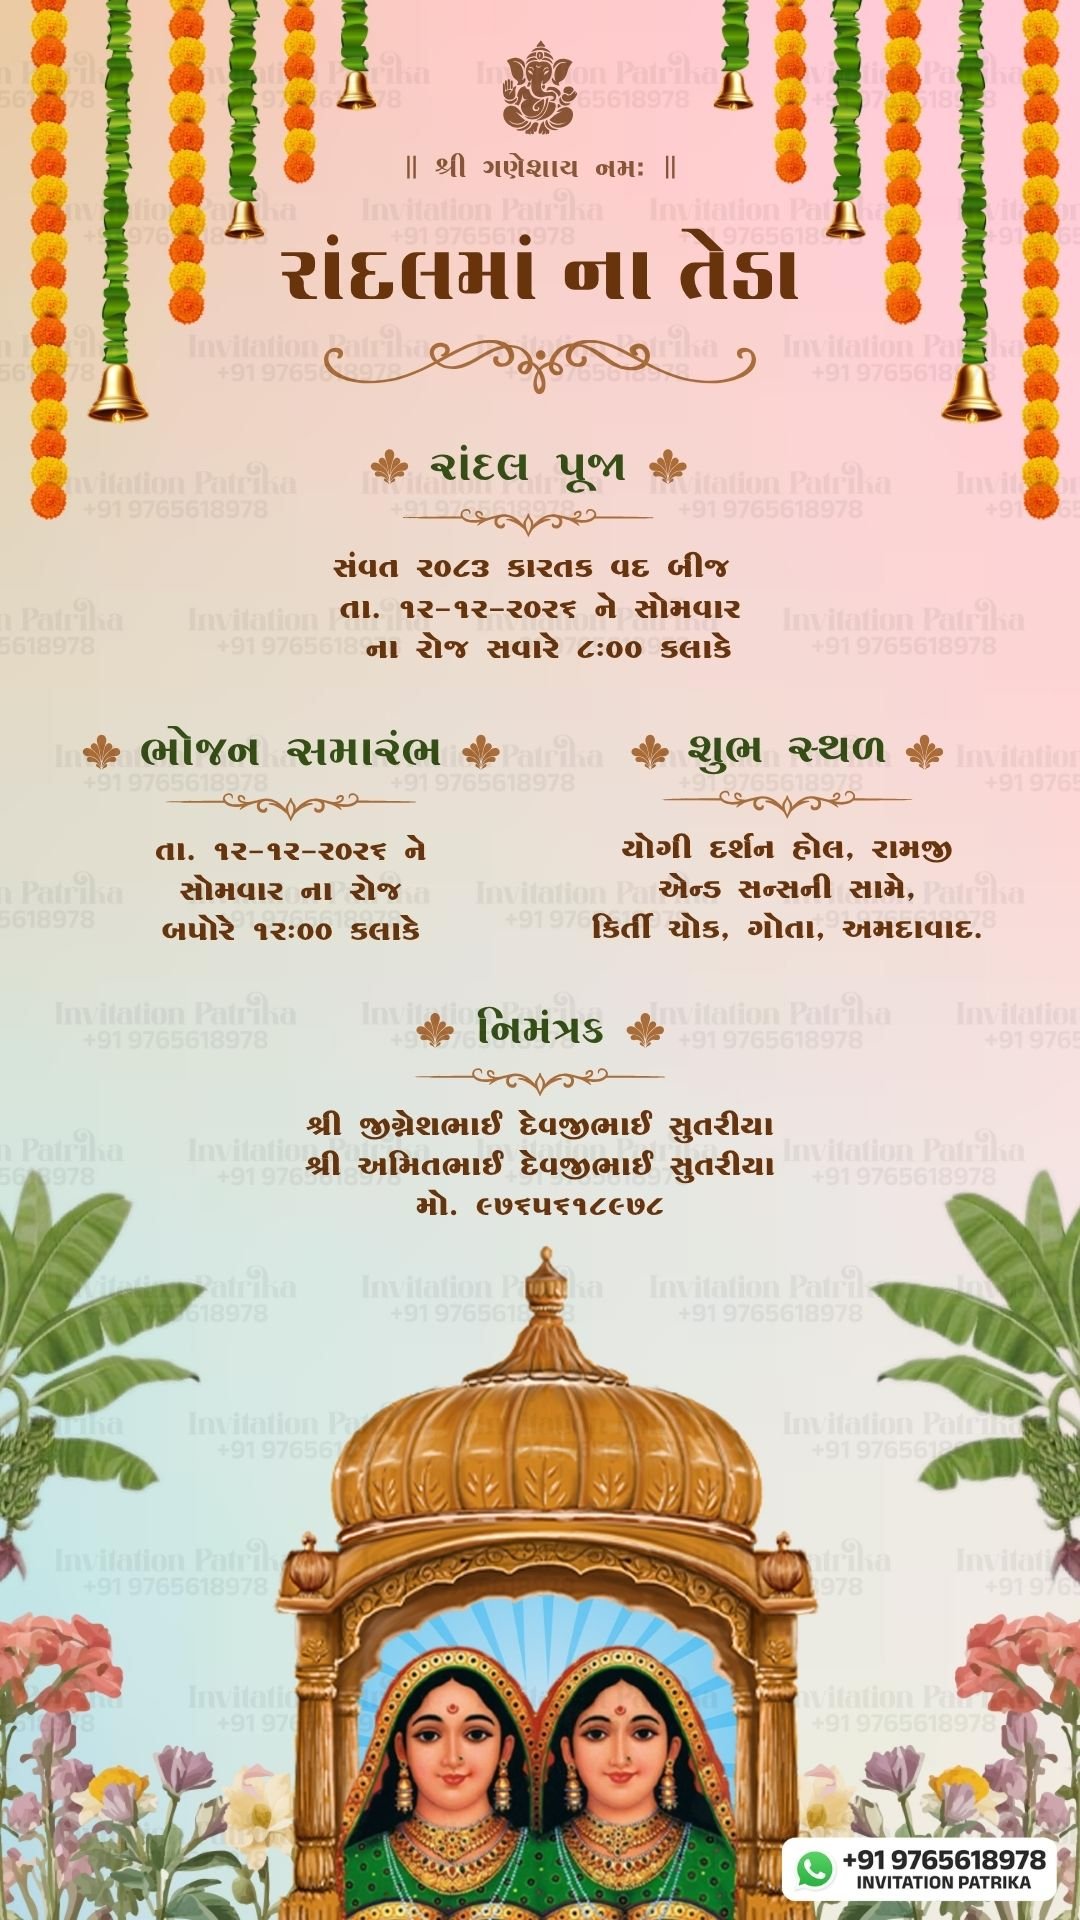 ॥ શ્રી ગણેશાય નમઃ ॥
રાંદલમાં ના તેડા
રાંદલ પૂજા
સંવત ૨૦૮૩ કારતક વદ બીજ
તા. ૧૨-૧૨-૨૦૨૬ ને સોમવાર
ના રોજ સવારે ૮:૦૦ કલાકે
ભોજન સમારંભ
તા. ૧૨-૧૨-૨૦૨૬ ને
સોમવાર ના રોજ
બપોરે ૧૨:૦૦ કલાકે
શુભ સ્થળ
યોગી દર્શન હોલ, રામજી
એન્ડ સન્સની સામે,
કિર્તી ચોક, ગોતા, અમદાવાદ.
નિમંત્રક
શ્રી જીગ્નેશભાઈ દેવજીભાઈ સુતરીયા
શ્રી અમિતભાઈ દેવજીભાઈ સુતરીયા
મો. ૯૭૬૫૬૧૮૯૭૮
+91 9765618978
INVITATION PATRIKA
Invitation Patrika
+91 9765618978